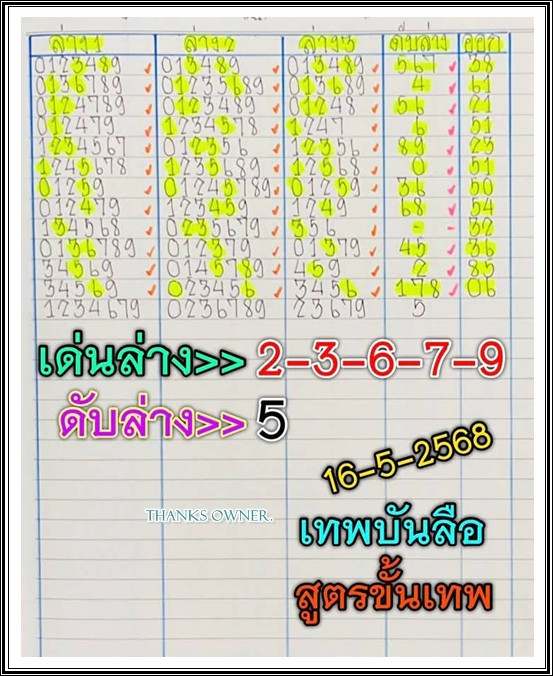 ล่าง1 ล่าง2 ล่าง3 ดับล่าง ออก
0123489 013489 013489 567 38
0136789 01235689 0135689 4 61
0124789 0123489 01248 56 21
012479 1234578 1247 6 51
1234567 012356 12356 89 23
1245678 1235689 12568 0 51
01259 01245789 01259 36 50
012479 123459 1249 68 54
134568 0235679 356 - 32
0136789 012379 01379 45 36
34569 0145789 459 2 85
34569 023456 3456 178 06
1234679 0236789 23679 5
เด่นล่าง>> 2-3-6-7-9
ดับล่าง>> 5
16-5-2568
THANKS OWNER.
เทพบันลือ
สูตรขั้นเทพ